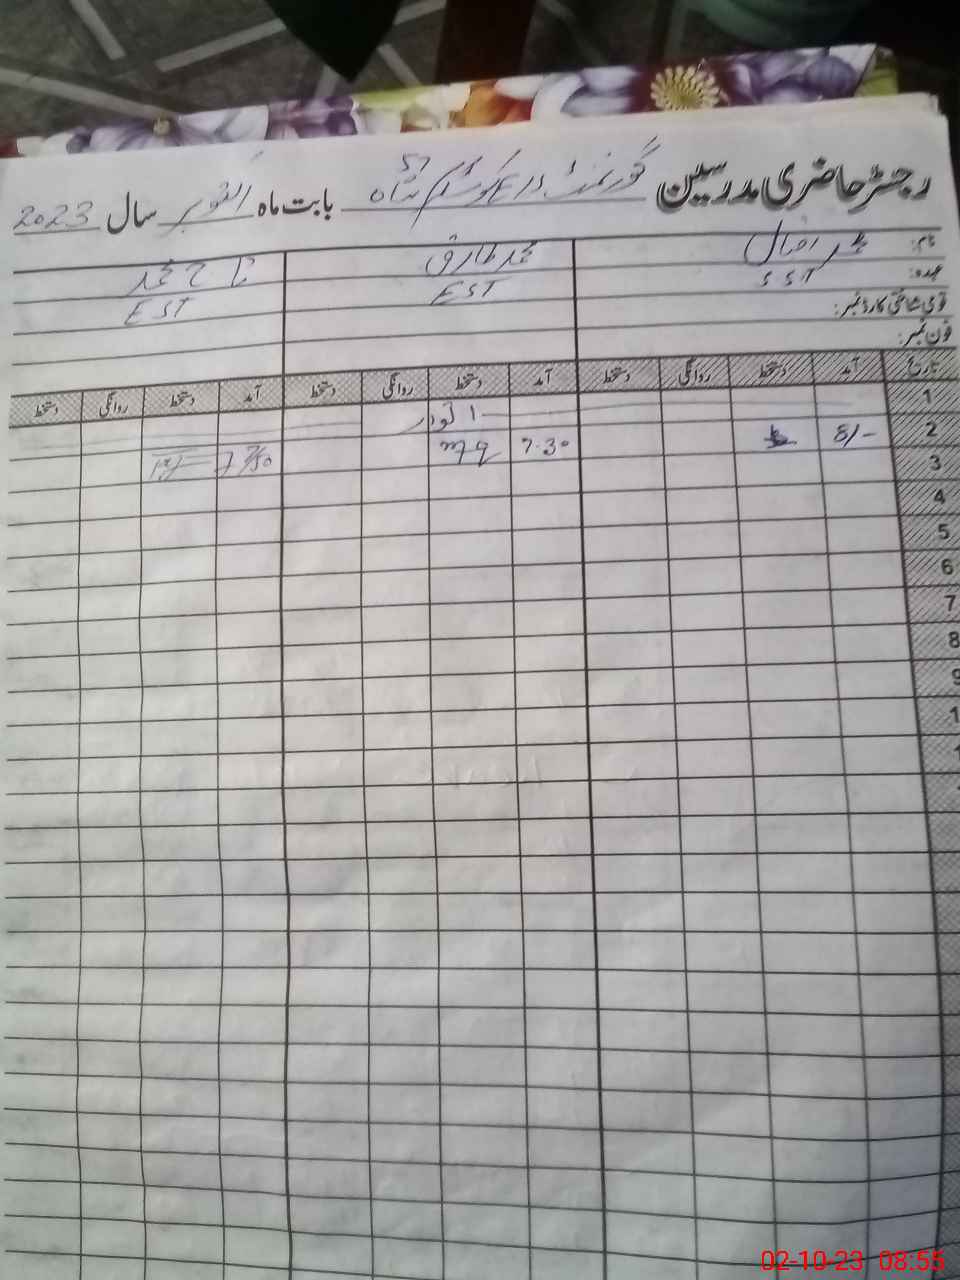 رجسٹر حاضری مدرسین گورنمنٹ بابت ماہ اکتوبر سال 2023
نام: محمد طارق تاج محمد
عہدہ: SST EST EST
قومی شناختی کارڈ نمبر:
فون نمبر:
تاریخ آمد دستخط روانگی دستخط آمد دستخط روانگی دستخط آمد دستخط روانگی دستخط
1 اتوار
2 8/- 7:30 mq 7:30
3
4
5
6
7
8
9
1
1
02-10-23 08:55